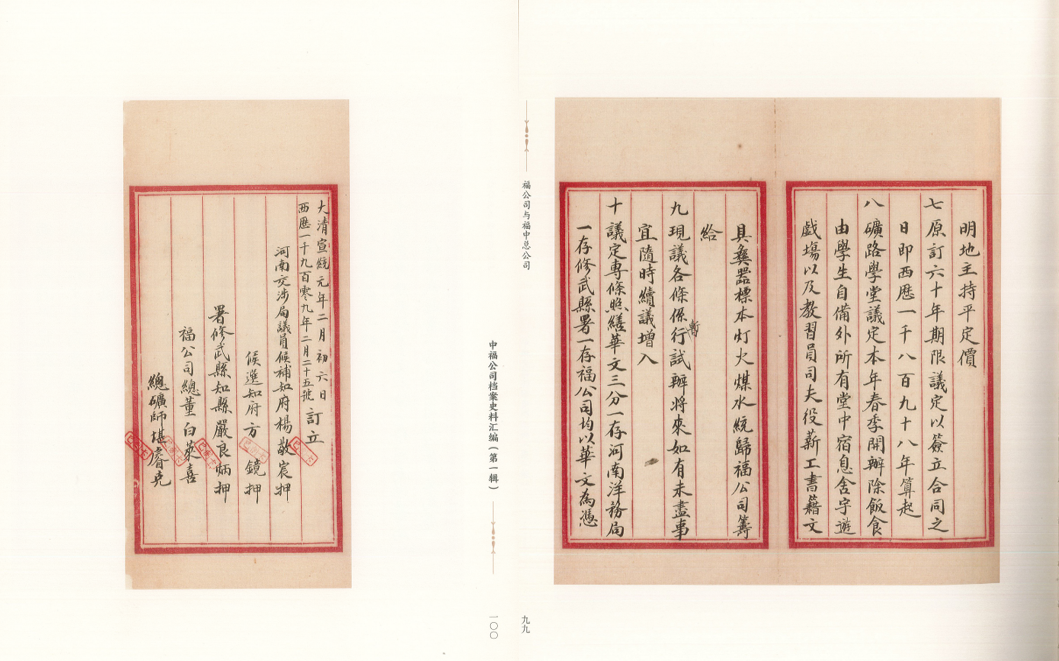 明地主持平定價
七原訂六十年期限議定以簽立合同之
日即西歷一千八百九十八年算起
八礦路學堂議定本年春季開辦除飯食
由學生自備外所有堂中宿息舍宇遊
戲場以及教習員司夫役薪工書籍文
具彝器標本灯火煤水統歸福公司籌
給
九現議各條係暫行試辦將來如有未盡事
宜隨時續議增入
十議定專條照繕華文三分一存河南洋務局
一存修武縣署一存福公司均以華文為憑
福公司与福中总公司
九九
大清宣統元年二月初六日
西歷一千九百零九年二月二十五號
訂立
河南交涉局議員候補知府楊敬宸押
候選知府方鏡押
署修武縣知縣嚴良炳押
福公司總董白萊喜
總礦師堪睿克
中福公司档案史料汇编（第一辑）
一〇〇